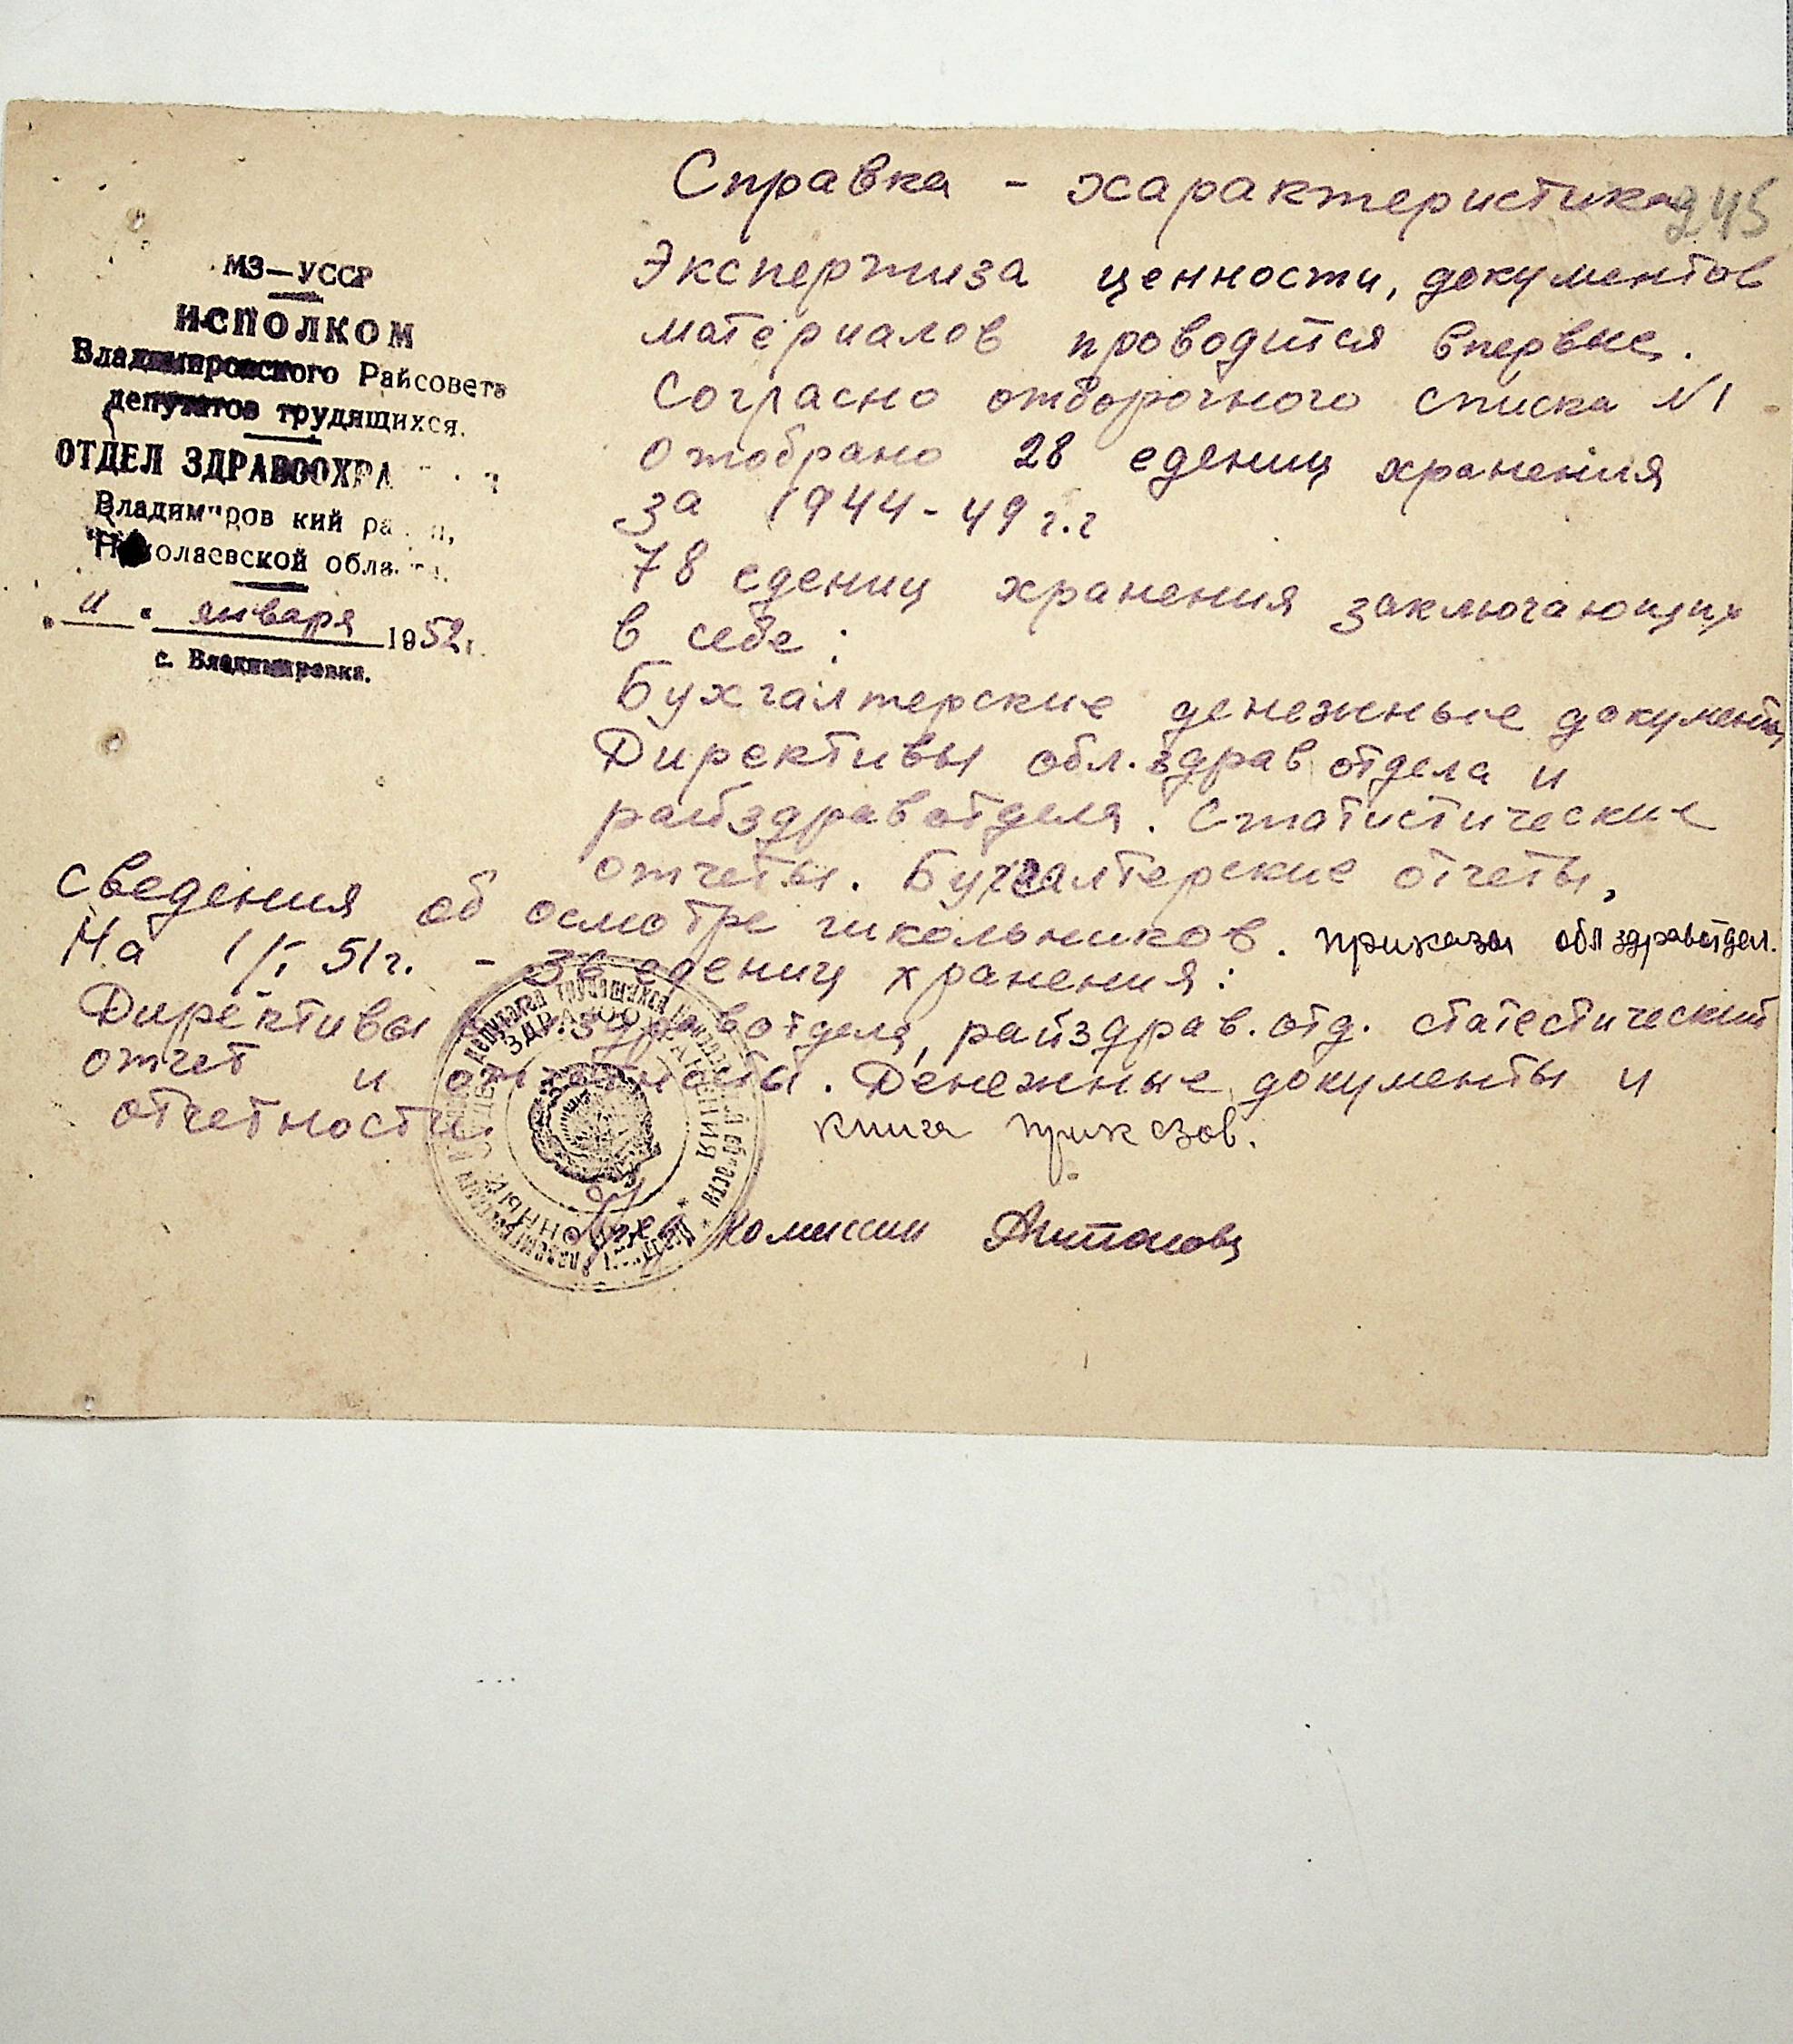 Справка - характеристика
245
МЗ—УССР
ИСПОЛКОМ
Владимировского Райсовета
депутатов трудящихся.
ОТДЕЛ ЗДРАВООХРА
Владимиров кий ра н,
Николаевской обла
"11" января 1952 г.
с. Владимировка.
Экспертиза ценности, документов
материалов проводится впервые.
Согласно отборочного списка №1
отобрано 28 едениц хранения
за 1944-49 г.г
78 едениц хранения заключающих
в себе:
Бухгалтерские денежные документы
Директивы обл. здрав отдела и
райздравотдела. Статистические
отчеты. Бухгалтерские отчеты,
сведения об осмотре школьников. приказы облздравотдел.
На 1/I 51г. - едениц хранения:
Директивы здравотдела, райздрав. отд. статестический
отчет и отчетность. Денежные документы и
отчетности. книга приказов.
ЗДРАВООХРАНЕНИЯ
Пред комиссии